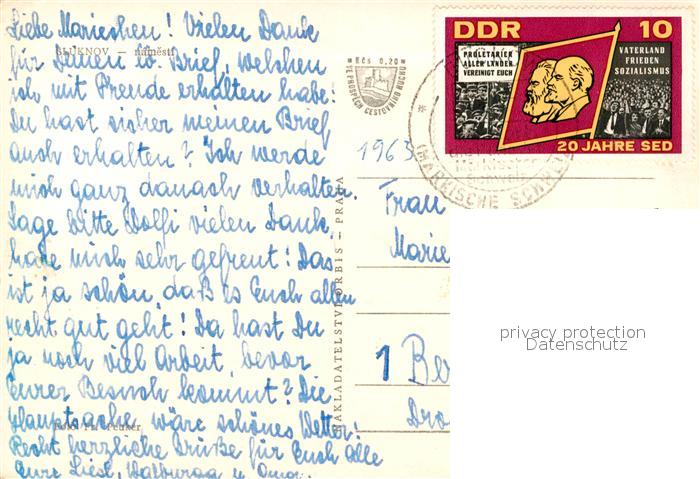 Liebe Mariechen! Vielen Dank
ŠLUKNOV – náměstí
für Deinen lb. Brief, welchen
ich mit Freude erhalten habe!
Du hast sicher meinen Brief
auch erhalten? Ich werde
mich ganz danach verhalten.
Sage bitte Wolfi vielen Dank
habe mich sehr gefreut! Das
ist ja schön, daß es Euch allen
recht gut geht! Da hast Du
ja noch viel Arbeit, bevor
Eurer Besuch kommt? Die
Hauptsache wäre schönes Wetter!
Recht herzliche Grüße für Euch alle
Eure Liesl, Walburga u. Oma.
Kčs 0,20
VE PROSPĚCH CESTOVNÍHO RUCHU
NAKLADATELSTVÍ ORBIS – PRAHA
DDR 10
PROLETARIER
ALLER LÄNDER
VEREINIGT EUCH
VATERLAND
FRIEDEN
SOZIALISMUS
20 JAHRE SED
(MÄRKISCHE SCHWEIZ
1963
Frau
Marie
1 Be
Dro
privacy protection
Datenschutz